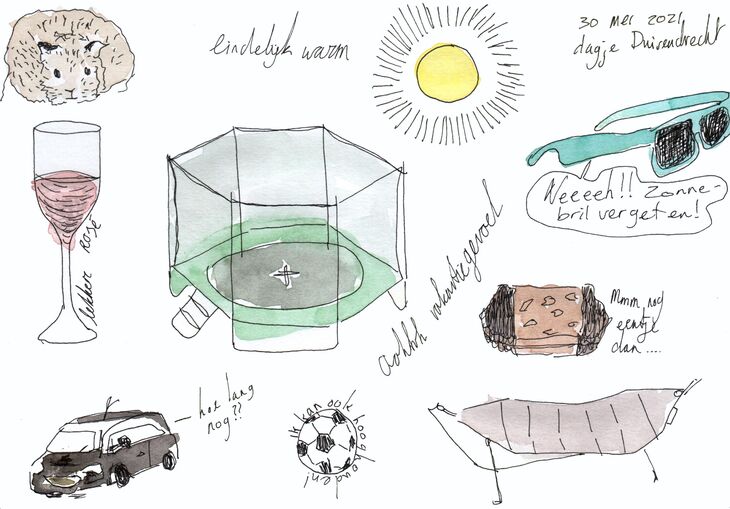 eindelijk warm
30 mei 2021
dagje Duivendrecht
Neeeeh!! Zonne-
bril vergeten!
lekker rosé
aahhh vakantiegevoel
Mmm, nog
eentje
dan ....
hoe lang
nog??
ik kan ook hooghouden!